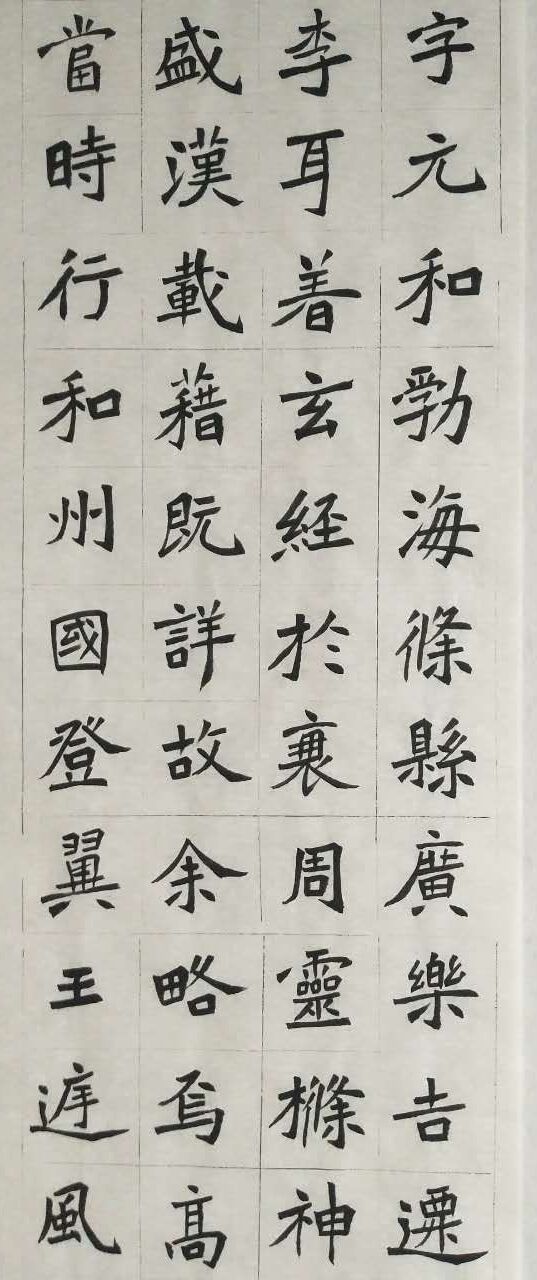 字元和勃海條縣廣樂吉遷
李耳着玄經於衰周靈櫾神
盛漢載藉既詳故余略焉高
當時行和州國登翼王遅風